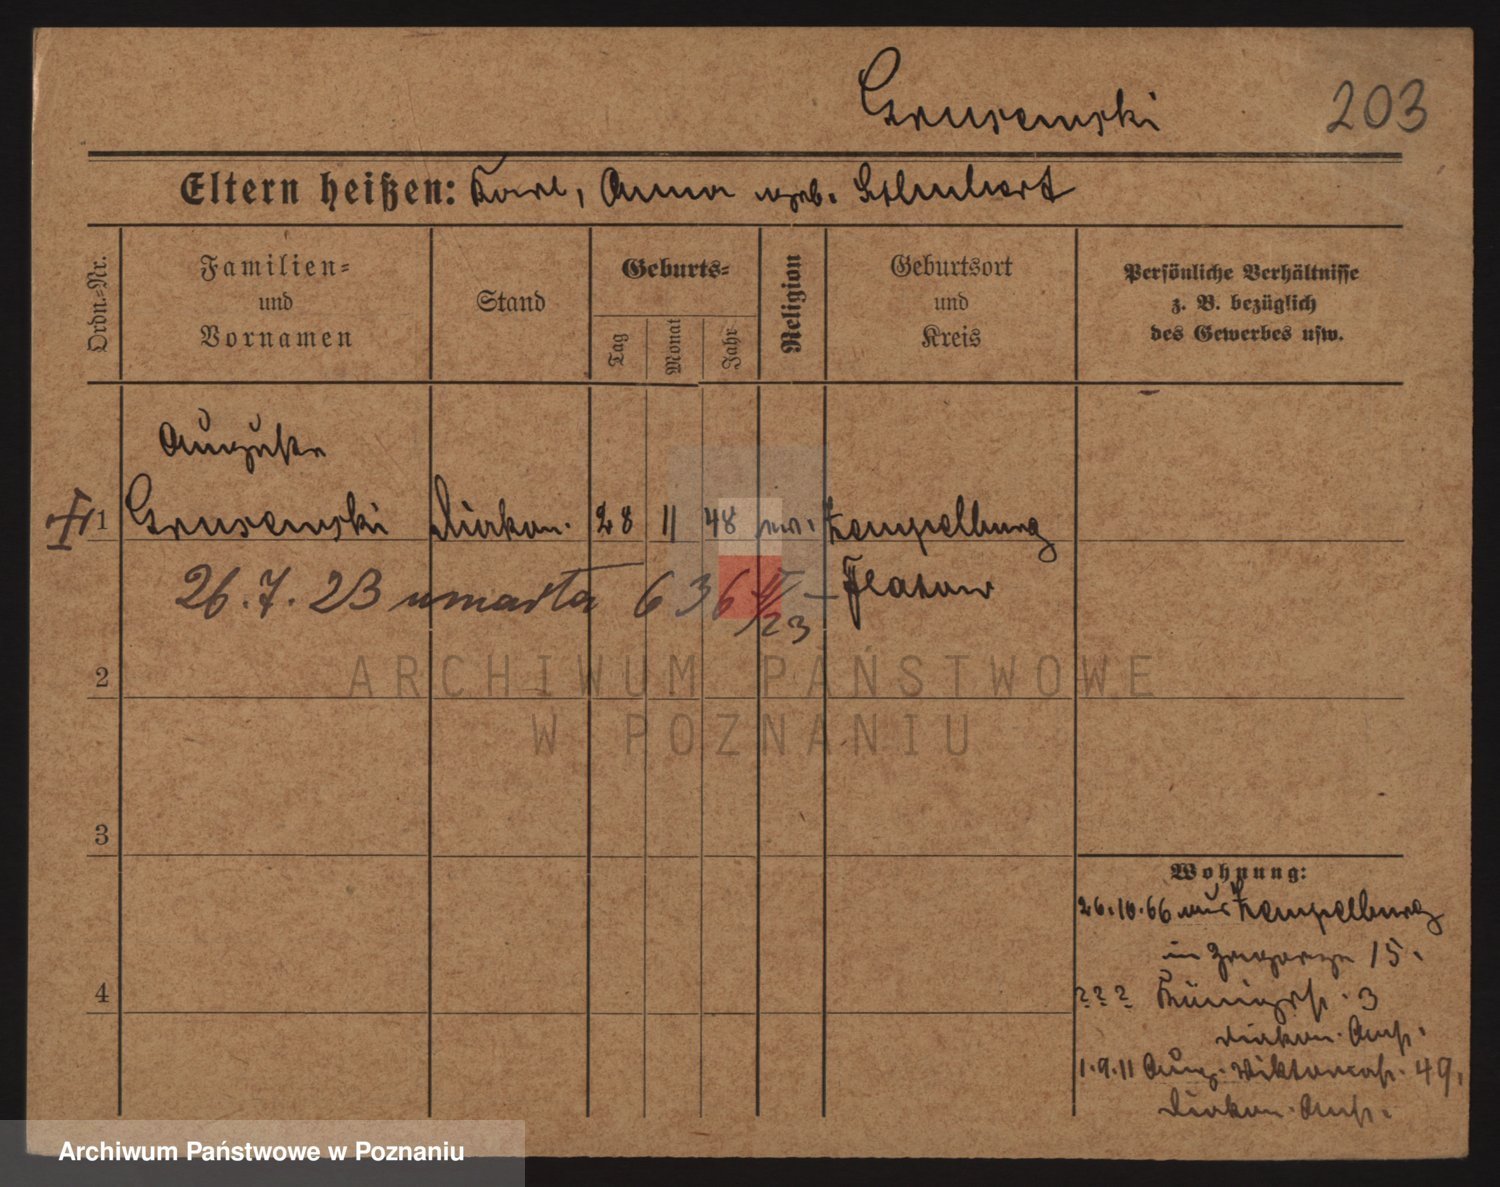 Grusemski 203
Eltern heißen: Karl, Anna geb. Schubert
Ordn.=Nr.
Familien=
und
Vornamen
Stand
Geburts=
Tag
Monat
Jahr
Religion
Geburtsort
und
Kreis
Persönliche Verhältnisse
z. B. bezüglich
des Gewerbes usw.
Auguste
1 Grusemski Diakon. 28 11 48 ev. Zempelburg
26. 7. 23 umarła 636 II/23 – Flatow
2
ARCHIWUM PAŃSTWOWE
W POZNANIU
3
Wohnung:
26.10.66 aus Zempelburg
in 15.
4
? ? ? Königstr. 3
Diakon. Anst.
1.9.11 Aug. Viktoriastr. 49,
Diakon. Anst.
Archiwum Państwowe w Poznaniu